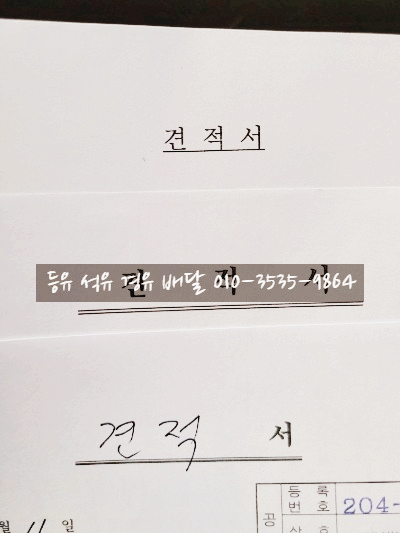 견적서
등유 석유 경유 배달 010-3535-9864
견적서
등록
번호 204-
공
상호
월 11 일